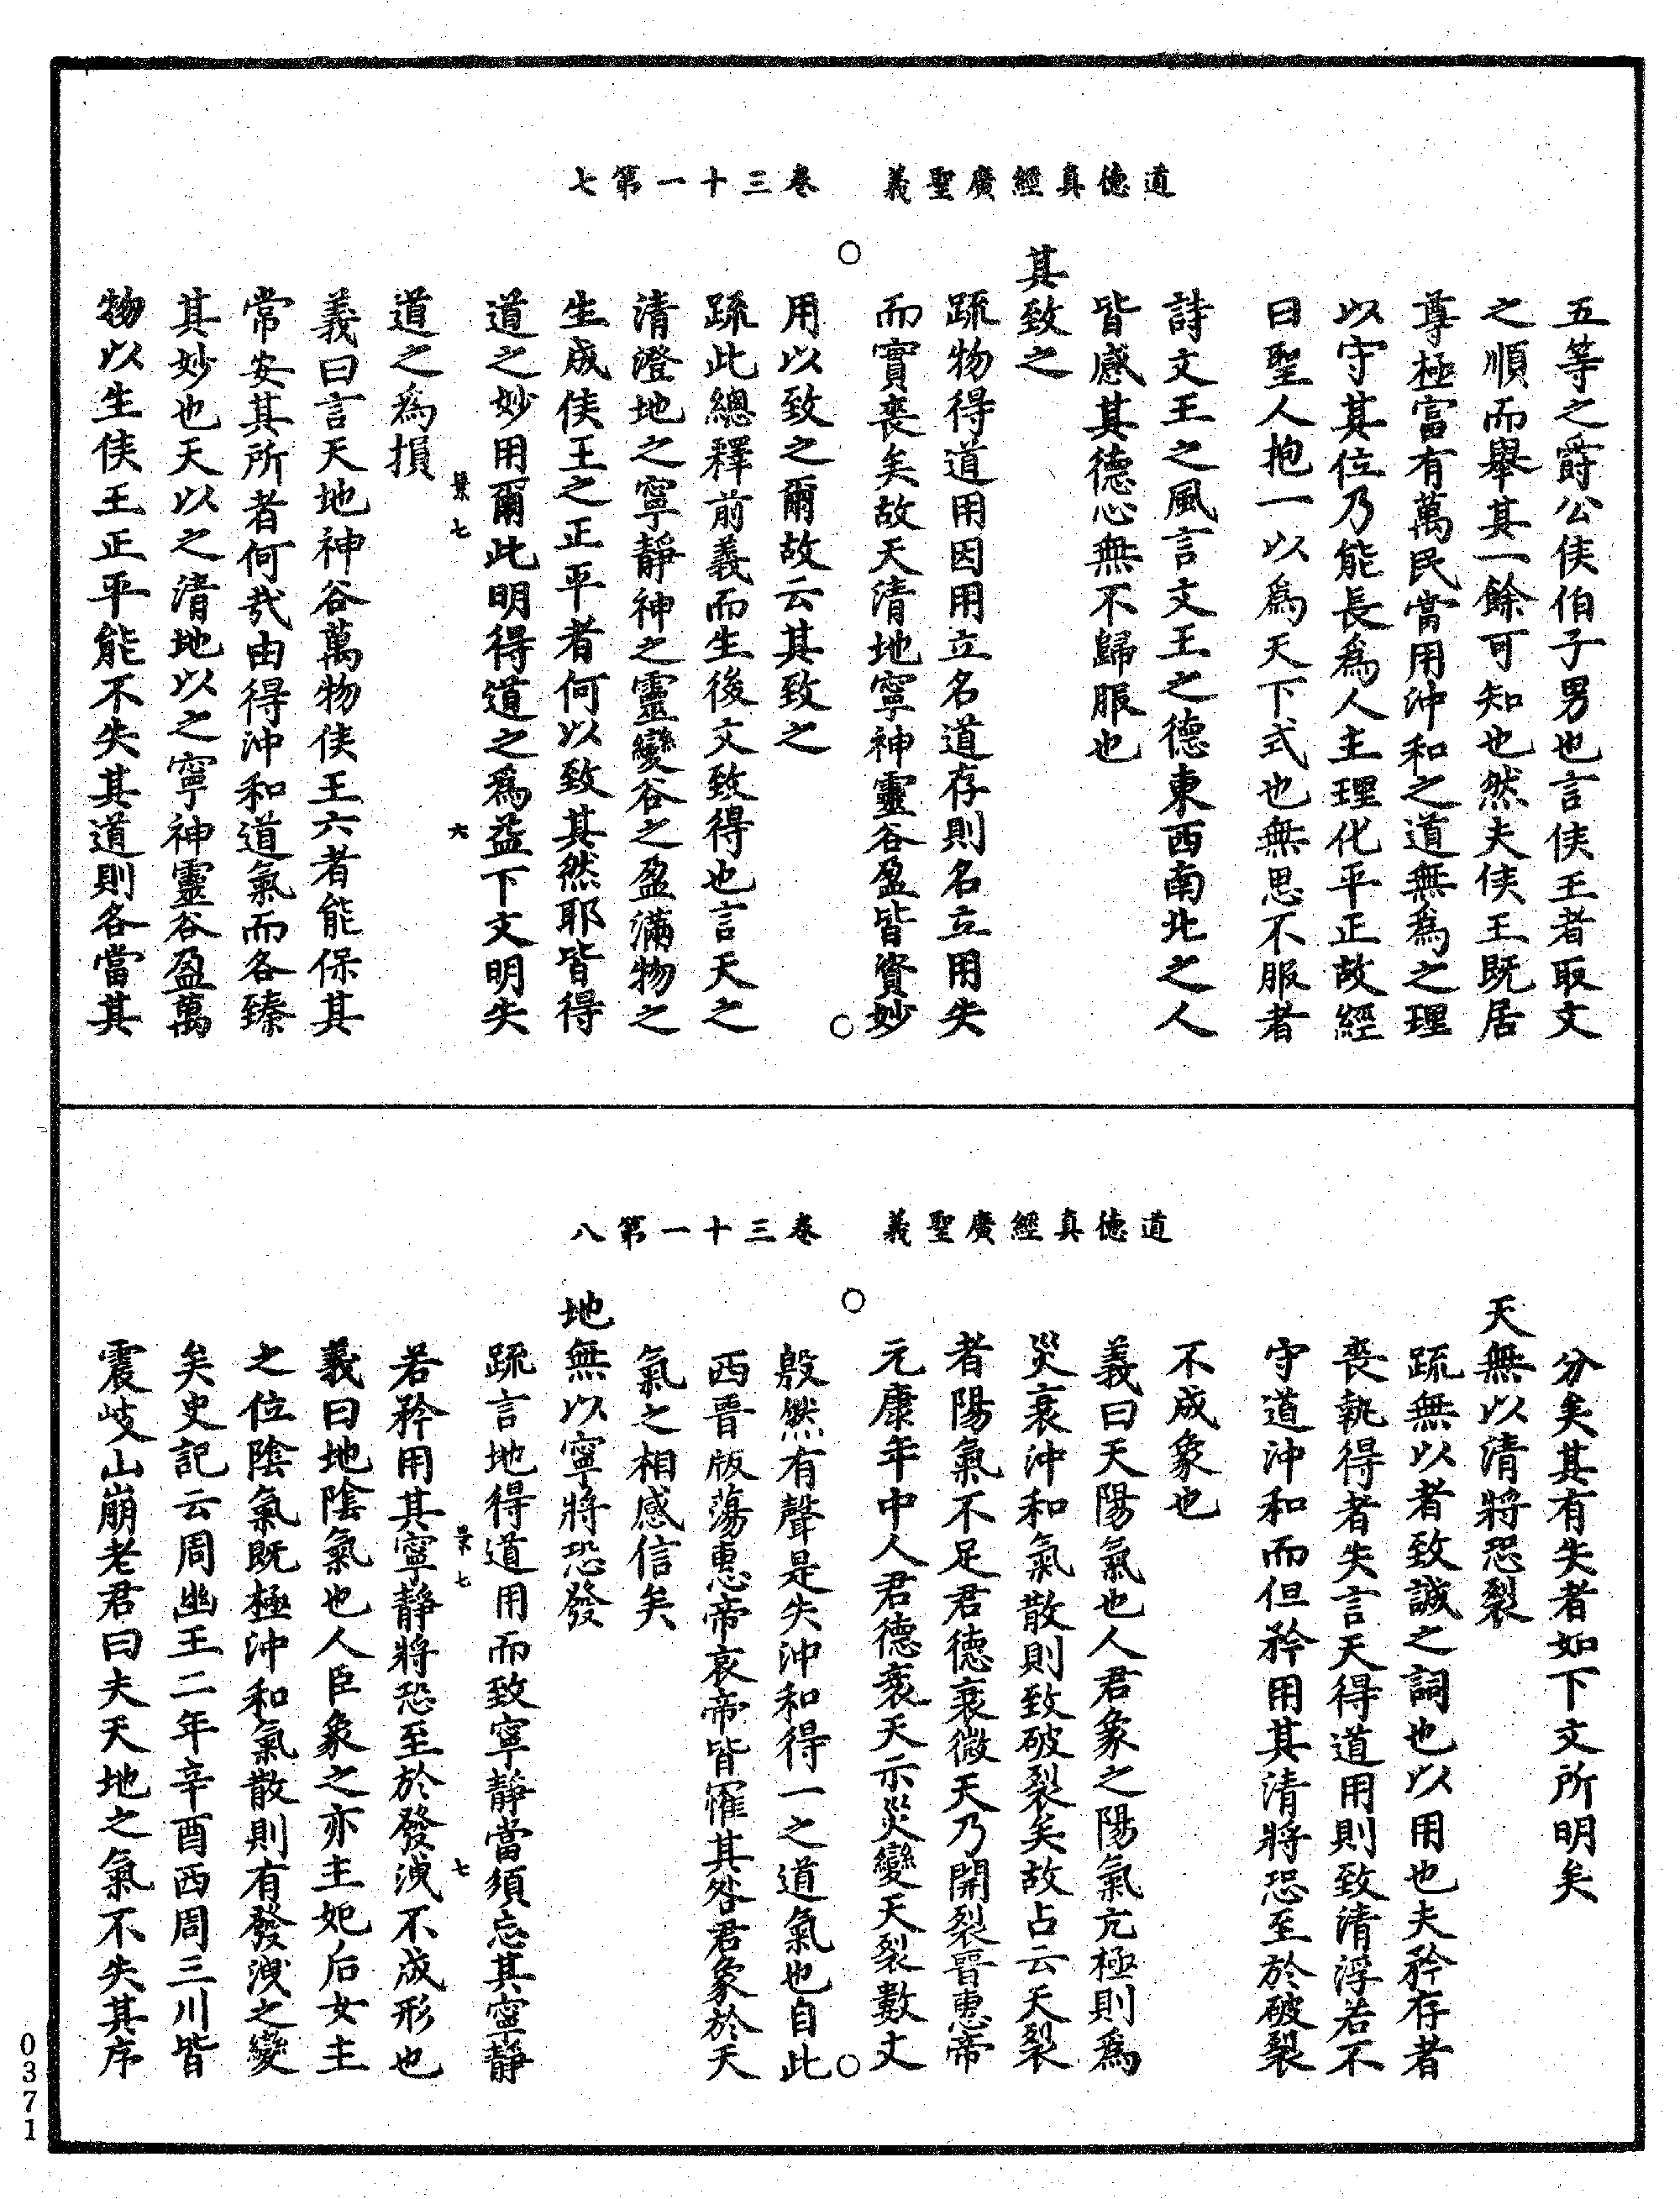 道德真經廣聖義　卷三十一第七
五等之爵公侯伯子男也言侯王者取文
之順而舉其一餘可知也然夫侯王既居
尊極富有萬民當用沖和之道無為之理
以守其位乃能長為人主理化平正故經
曰聖人抱一以為天下式也無思不服者
詩文王之風言文王之德東西南北之人
皆感其德心無不歸服也
其致之
疏物得道用因用立名道存則名立用失
而實喪矣故天清地寧神靈谷盈皆資妙
用以致之爾故云其致之
疏此總釋前義而生後文致得也言天之
清澄地之寧靜神之靈變谷之盈滿物之
生成侯王之正平者何以致其然耶皆得
道之妙用爾此明得道之為益下文明失
道之為損
義曰言天地神谷萬物侯王六者能保其
常安其所者何哉由得沖和道氣而各臻
其妙也天以之清地以之寧神靈谷盈萬
物以生侯王正平能不失其道則各當其
道德真經廣聖義　卷三十一第八
分矣其有失者如下文所明矣
天無以清將恐裂
疏無以者致誠之詞也以用也夫矜存者
喪執得者失言天得道用則致清浮若不
守道沖和而但矜用其清將恐至於破裂
不成象也
義曰天陽氣也人君象之陽氣亢極則為
災衰沖和氣散則致破裂矣故占云天裂
者陽氣不足君德衰微天乃開裂晉惠帝
元康年中人君德衰天示災變天裂數丈
殷然有聲是失沖和得一之道氣也自此
西晉版蕩惠帝哀帝皆罹其咎君象於天
氣之相感信矣
地無以寧將恐發
疏言地得道用而致寧靜當須忘其寧靜
若矜用其寧靜將恐至於發洩不成形也
義曰地陰氣也人臣象之亦主妃后女主
之位陰氣既極沖和氣散則有發洩之變
矣史記云周幽王二年辛酉西周三川皆
震岐山崩老君曰夫天地之氣不失其序
0371